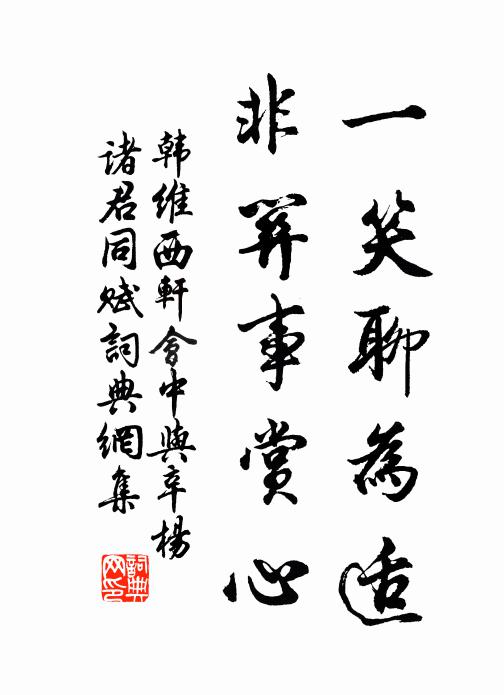 一笑聊為适
非關事賞心
韩維西軒會中與辛楊
诸君同賦詞典網集
詞典网印